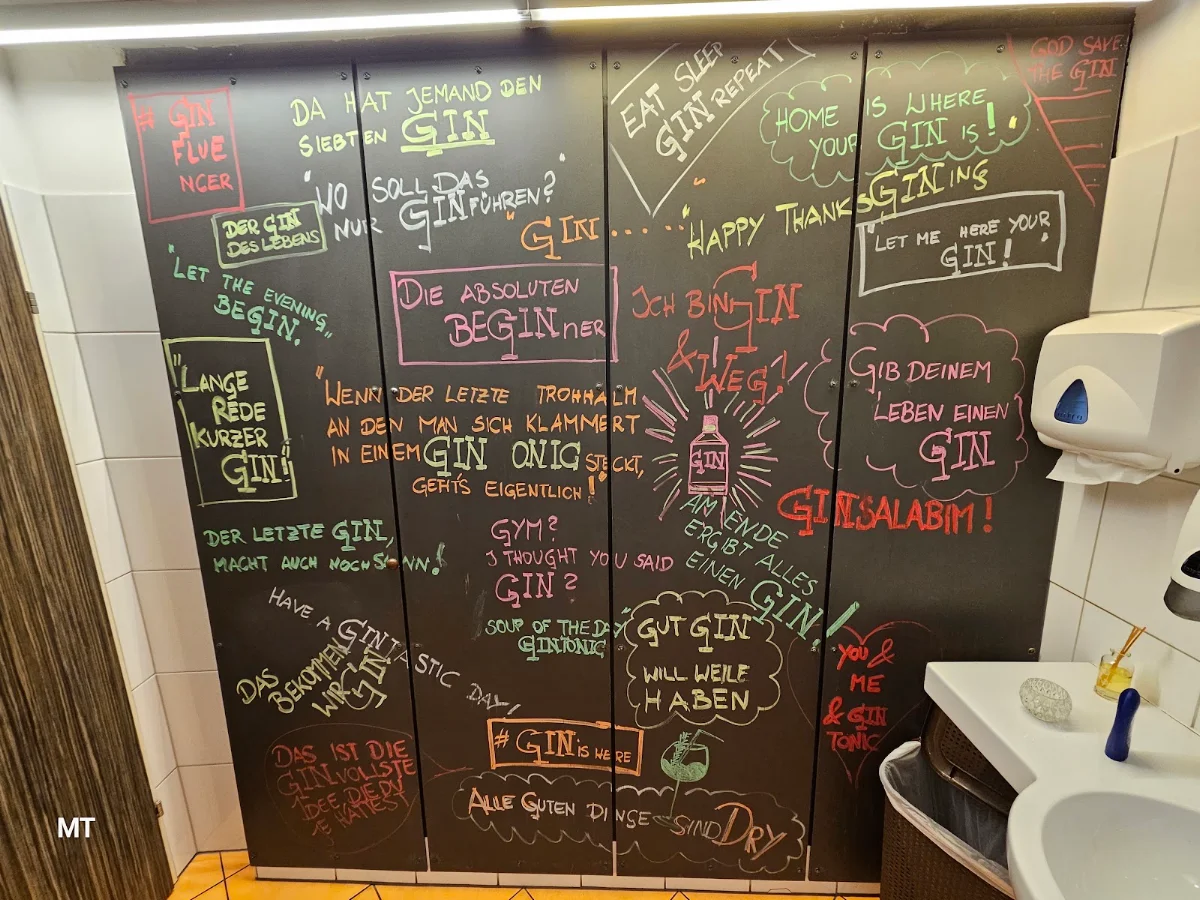 # GIN
FLUE
NCER
DA HAT JEMAND DEN
SIEBTEN GIN
EAT SLEEP
GIN REPEAT
HOME IS WHERE
YOUR GIN IS!
GOD SAVE
THE GIN
"WO SOLL DAS
NUR GIN FÜHREN?"
DER GIN
DES LEBENS
"GIN......"
"HAPPY THANKSGINING
"LET ME HERE YOUR
GIN!"
"LET THE EVENING
BEGIN."
DIE ABSOLUTEN
BEGINNER
ICH BIN GIN
& WEG!
"LANGE
REDE
KURZER
GIN!"
"WENN DER LETZTE TROHHALM
AN DEN MAN SICH KLAMMERT
IN EINEM GIN ONIC STECKT,
GEHT'S EIGENTLICH!"
GIN
GIB DEINEM
LEBEN EINEN
GIN
GINSALABIM!
DER LETZTE GIN,
MACHT AUCH NOCH SINN!
GYM?
I THOUGHT YOU SAID
GIN?
AM ENDE
ERGIBT ALLES
EINEN GIN!
HAVE A GINTASTIC DAY!
SOUP OF THE DAY"
GINTONIC
GUT GIN
WILL WEILE
HABEN
YOU &
ME
& GIN
TONIC
DAS
BEKOMMEN
WIR GIN
# GIN IS HERE
DAS IST DIE
GINVOLLSTE
IDEE DIE DU
JE HATTEST
ALLE GUTEN DINGE SIND DRY
MT